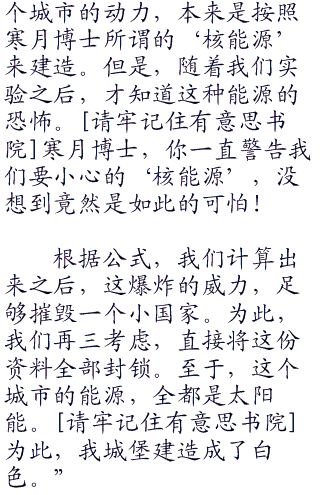 个城市的动力，本来是按照
寒月博士所谓的‘核能源’
来建造。但是，随着我们实
验之后，才知道这种能源的
恐怖。[请牢记住有意思书
院]寒月博士，你一直警告我
们要小心的‘核能源’，没
想到竟然是如此的可怕！
根据公式，我们计算出
来之后，这爆炸的威力，足
够摧毁一个小国家。为此，
我们再三考虑，直接将这份
资料全部封锁。至于，这个
城市的能源，全都是太阳
能。[请牢记住有意思书院]
为此，我城堡建造成了白
色。”